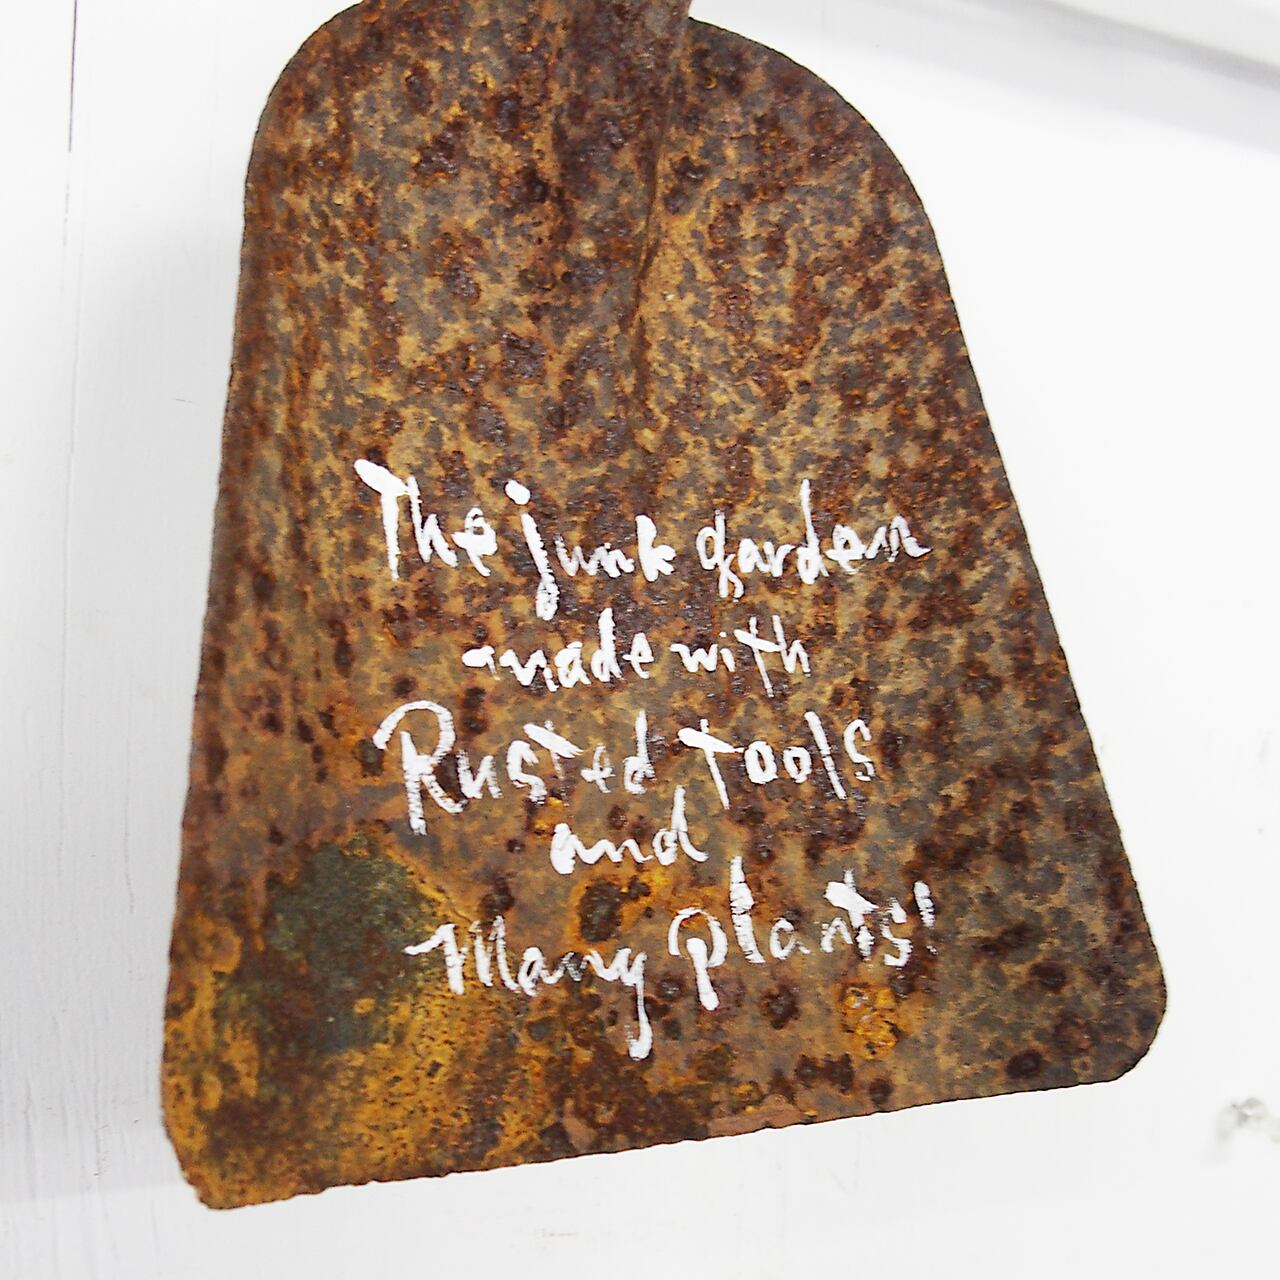 The junk garden
made with
Rusted Tools
and
Many plants!